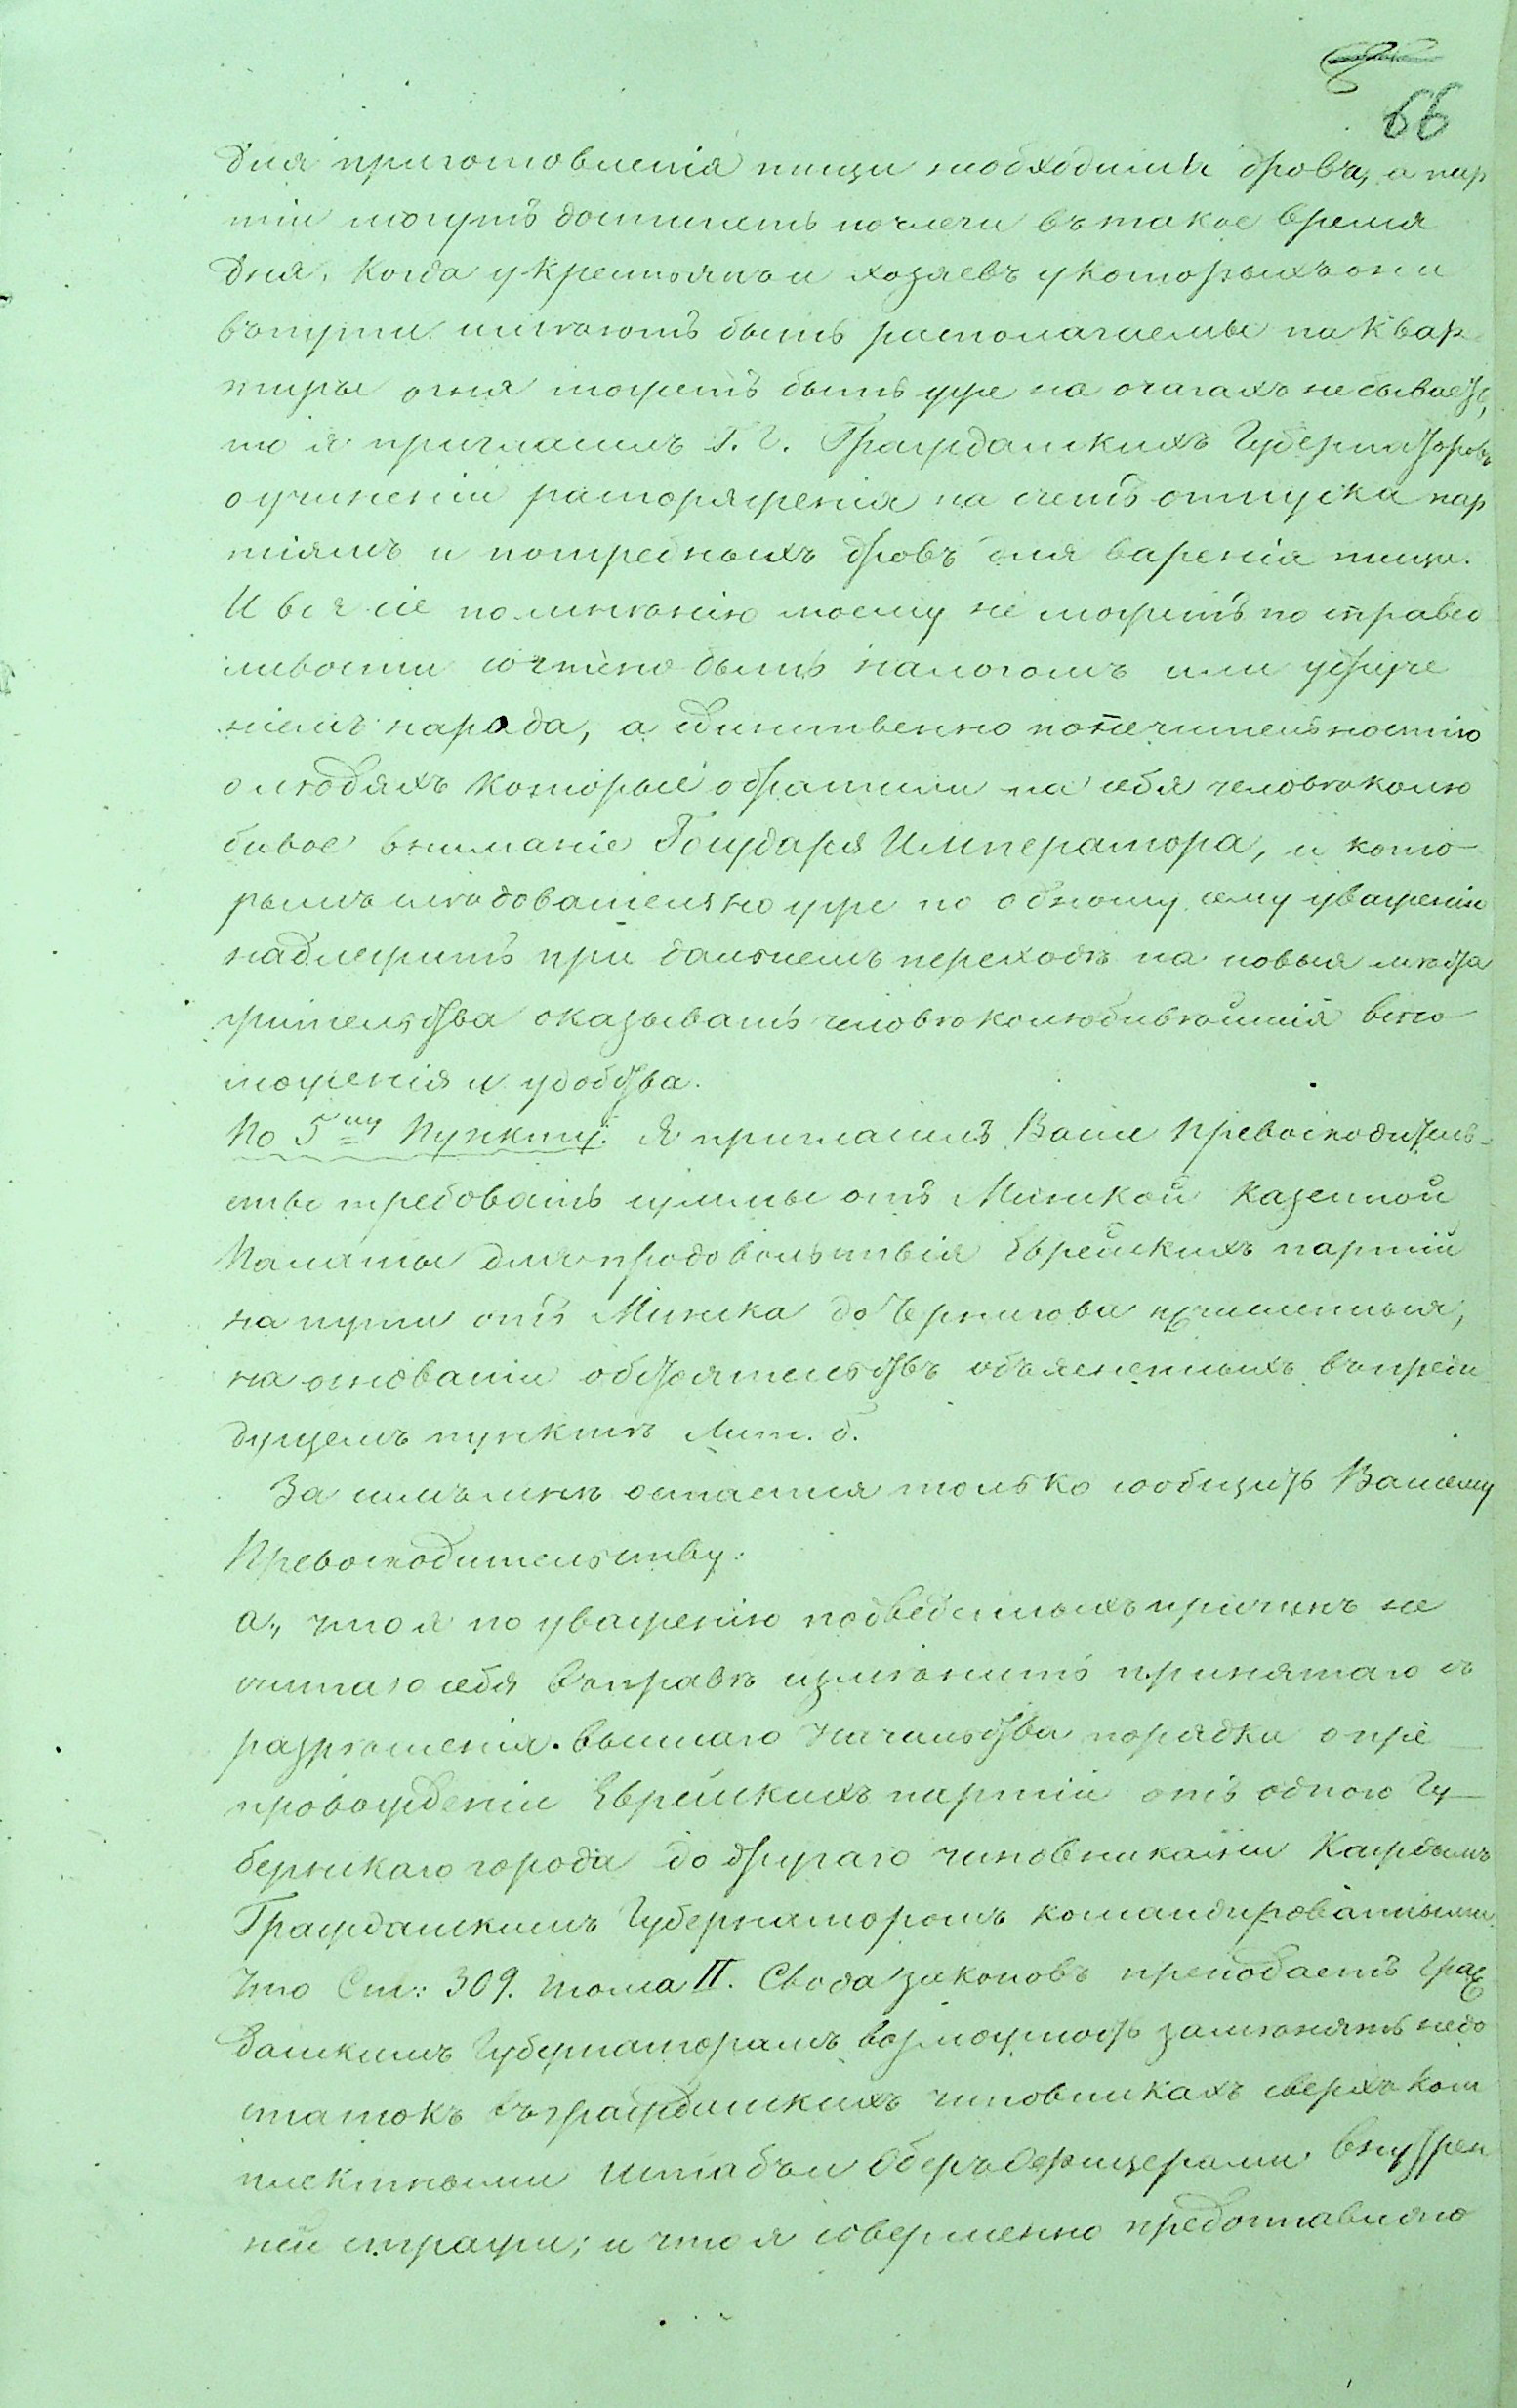 66
для приготовленія пищи необходимы дрова, а пар
тіи могутъ достигать ночлеги въ такое время
дня, когда у крестьянъ и хозяевъ у которыхъ они
въ пути имѣютъ быть располагаемы на квар
тиры огня можетъ быть уже на очагахъ небываетъ,
то я пригласилъ Г. Г. Гражданскихъ Губернаторовъ
о учиненіи распоряженія на счетъ отпуска пар
тіямъ и потребныхъ дровъ для варенія пищи.
И все сіе по мнѣнію моему не можетъ по справед
ливости сочтено быть налогомъ или удруче
ніемъ народа, а единственно попечительностію
о людяхъ которые обратили на себя человѣколю
бивое вниманіе Государя Императора, и кото-
рымъ слѣдовательно уже по одному сему уваженію
надлежитъ при дальнемъ переходѣ на новыя мѣста
жительства оказывать человѣколюбивѣйшія вспо
моженія и удобства.
По 5му Пункту. Я пригласилъ Ваше Превосходитель-
ство требовать суммы отъ Минской Казенной
Палаты для продовольствія Еврейскихъ партій
на пути отъ Минска до Чернигова исчисленныя,
на основаніи обстоятельствъ объясненныхъ въ преды
дущемъ пунктѣ Лит. б.
За симъ мнѣ остается только сообщить Вашему
Превосходительству:
а., что я по уваженію подведенныхъ причинъ не
считаю себя въ правѣ измѣнить принятаго съ
разрѣшенія вышшаго Начальства порядка о пре-
провожденіи Еврейскихъ партій отъ одного Гу-
бернскаго города до другаго чиновниками Каждымъ
Гражданскимъ Губернаторомъ командированными.
Что Ст: 309. тома II. Свода законовъ преподаетъ Граж
данскимъ Губернаторамъ возможность замѣнять недо
статокъ въ гражданскихъ чиновникахъ сверхъ ком
плектными Штабъ и Оберъ Офицерами внутрен
ней стражи; и что я совершенно предоставляю